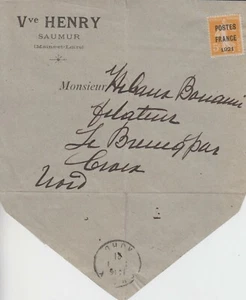 Vve HENRY
SAUMUR
(Maine-et-Loire)
POSTES
FRANCE
1921
Monsieur
filateur
Le
par
Croix
Nord